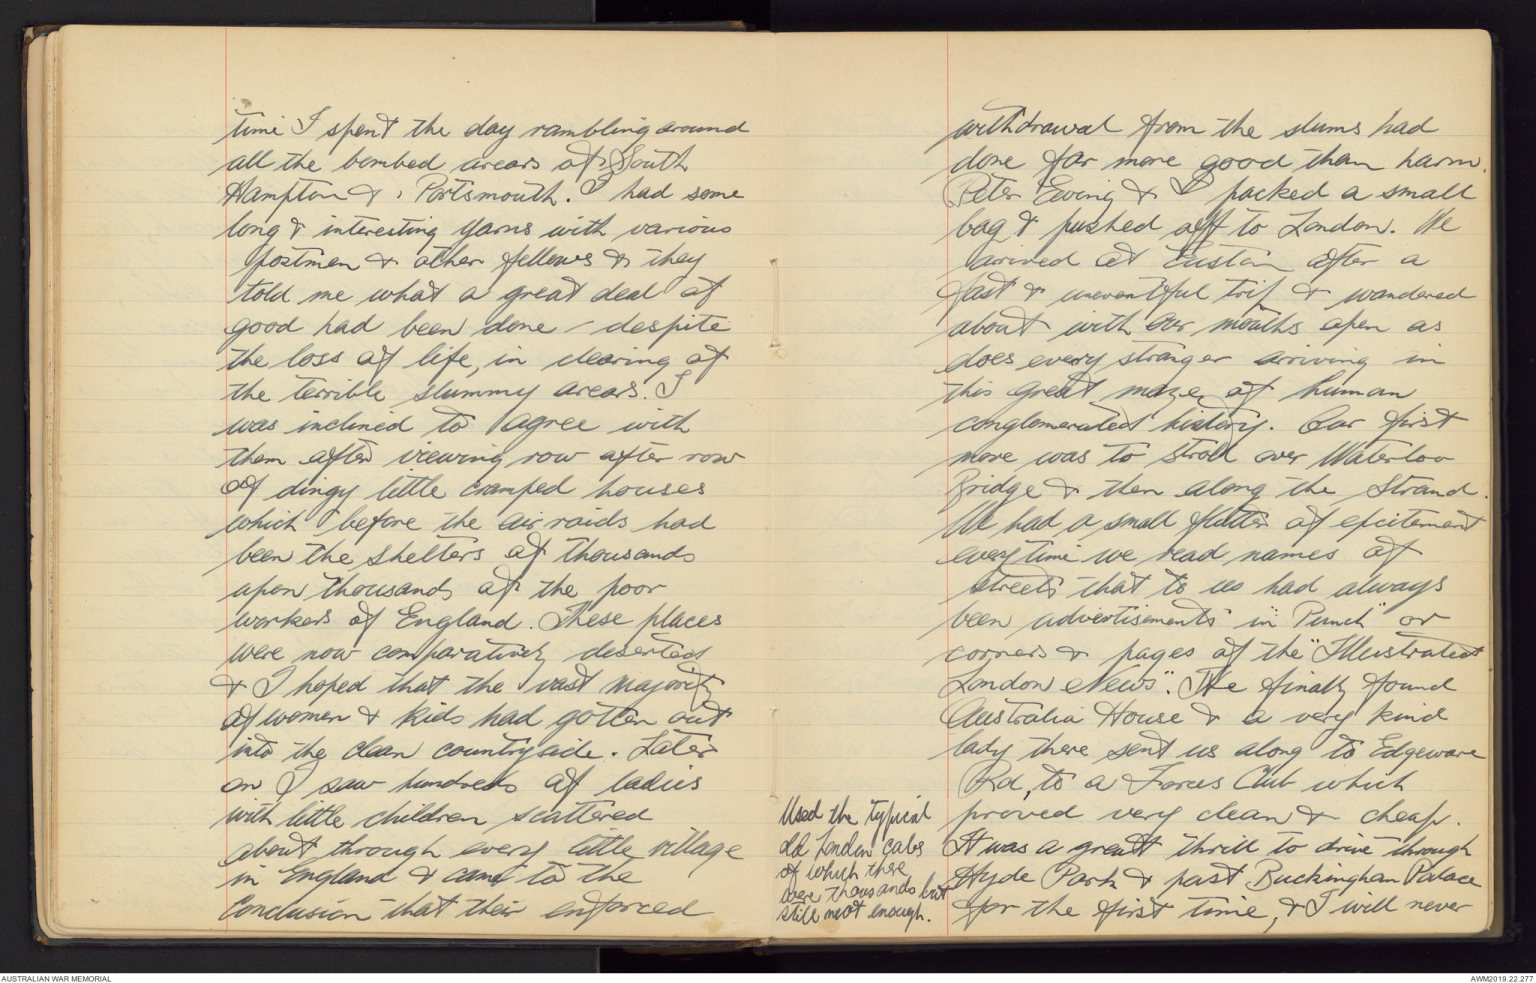 time I spent the day rambling around
all the bombed areas of South
Hampton & Portsmouth. I had some
long & interesting yarns with various
postmen & other fellows & they
told me what a great deal of
good had been done - despite
the loss of life, in clearing of
the terrible slummy areas. I
was inclined to agree with
them after viewing row after row
of dingy little cramped houses
which before the air raids had
been the shelters of thousands
upon thousands of the poor
workers of England. These places
were now comparatively deserted
& I hoped that the vast majority
of women & kids had gotten out
into the clean countryside. Later
on I saw hundreds of ladies
with little children scattered
about through every little village
in England & came to the
conclusion that their enforced
withdrawal from the slums had
done far more good than harm.
Peter Ewing & I packed a small
bag & pushed off to London. We
arrived at Euston after a
fast & uneventful trip & wandered
about with our mouths open as
does every stranger arriving in
this great maze of human
conglomerated history. Our first
move was to stroll over Waterloo
Bridge & then along the Strand.
We had a small flutter of excitement
everytime we read names of
streets that to us had always
been advertisements in "Punch" or
corners & pages of the "Illustrated
London News". We finally found
Australia House & a very kind
lady there sent us along to Edgeware
Rd, to a Forces Club which
proved very clean & cheap.
It was a great thrill to drive through
Hyde Park & past Buckingham Palace
for the first time, & I will never
Used the typical
old London cabs
of which there
were thousands but
still not enough.
AUSTRALIAN WAR MEMORIAL
AWM2019.22.277